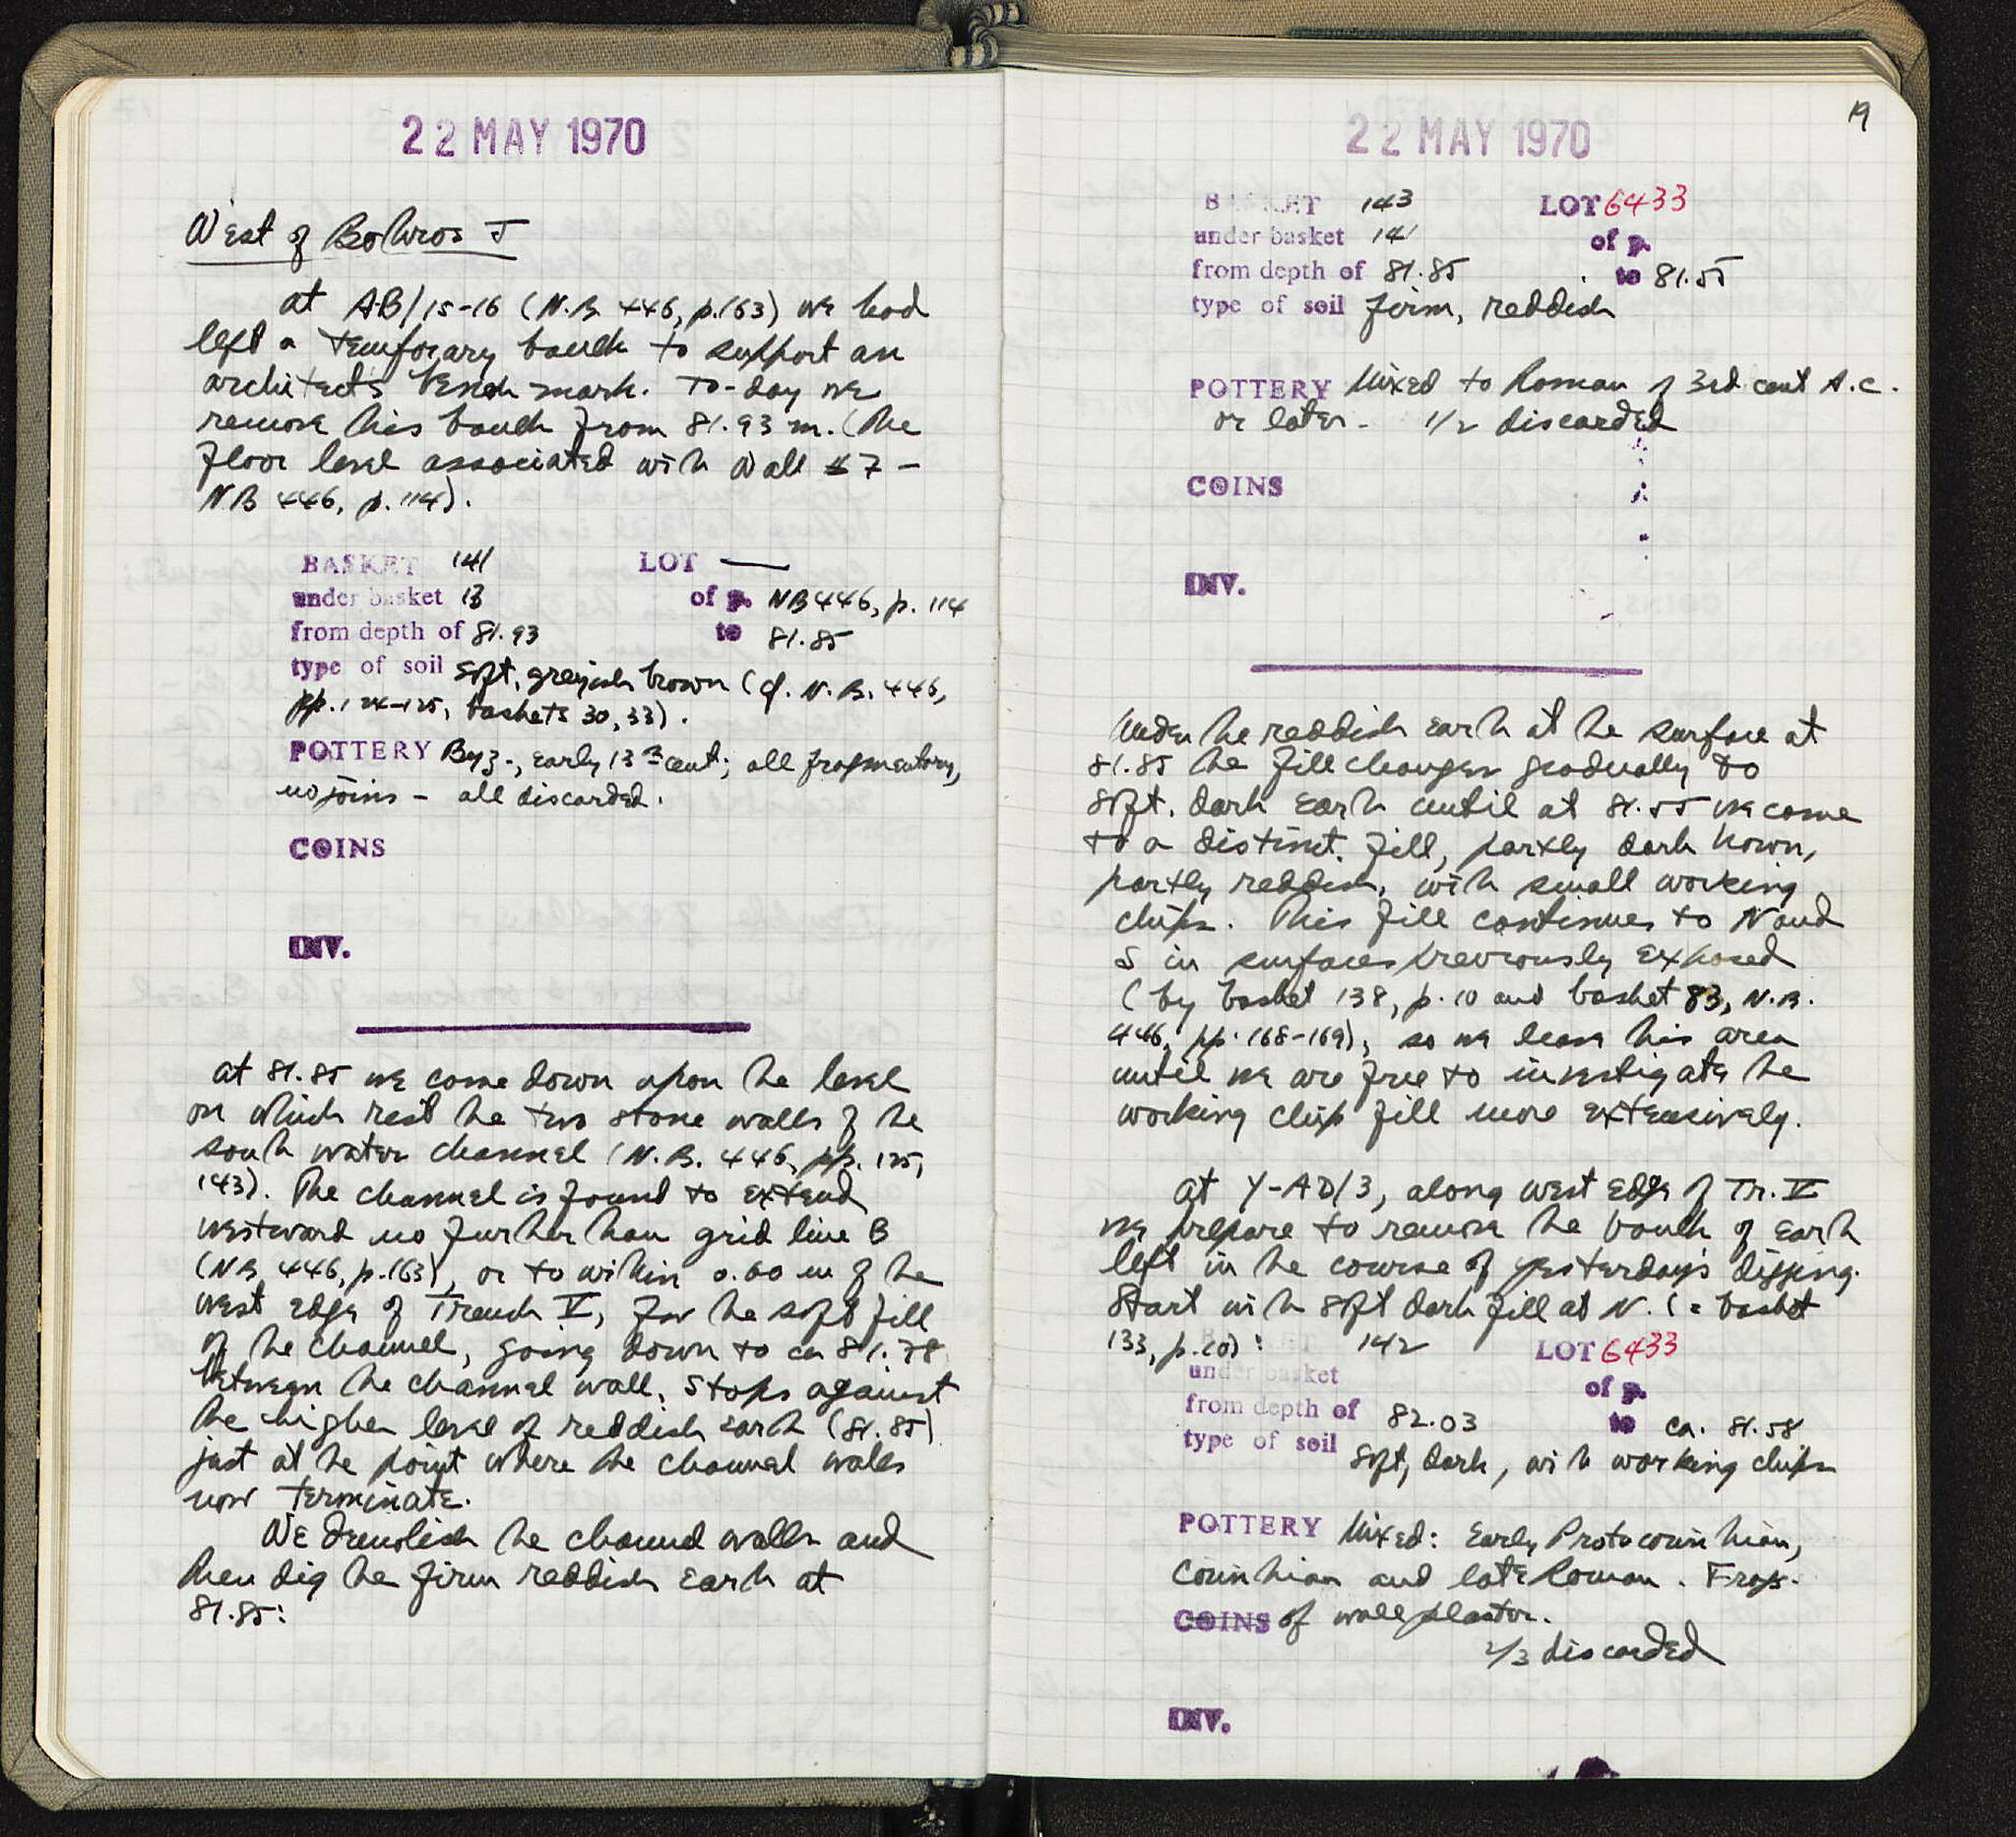 22 MAY 1970
West of Bothros I
At A-B/15-16 (N.B. 446, p.163) we had
left a temporary bauch to support an
architect's bench mark. To-day we
remove this bauch from 81.93 m. (the
floor level associated with Wall 7 -
NB 446, p. 114).
BASKET 141 LOT —
under basket 13 of p. NB 446, p. 114
from depth of 81.93 to 81.85
type of soil soft, greyish brown (cf. N.B. 446,
pp. 124-125, baskets 30, 33).
POTTERY Byz., early 13th cent; all fragmentary,
no joins - all discarded.
COINS
INV.
At 81.85 we come down upon the level
on which rest the two stone walls of the
south water channel (N.B. 446, pp. 125,
143). The channel is found to extend
westward no further than grid line B
(NB 446, p.163), or to within 0.60 m of the
west edge of Trench V, for the soft fill
of the channel, going down to ca 81.78
between the channel wall, stops against
the higher level of reddish earth (81.85)
just at the point where the channel walls
now terminate.
We demolish the channel walls and
then dig the firm reddish earth at
81.85:
19
22 MAY 1970
BASKET 143 LOT 6433
under basket 141 of p.
from depth of 81.85 to 81.55
type of soil firm, reddish
POTTERY Mixed to Roman of 3rd cent A.C.
or later - 1/2 discarded
COINS
INV.
Under the reddish earth at the surface at
81.85 the fill changes gradually to
soft, dark earth until at 81.55 we come
to a distinct fill, partly dark brown,
partly reddish, with small working
chips. This fill continues to N and
S in surfaces previously exposed
(by basket 138, p. 10 and basket 83, N.B.
446, pp. 168-169), so we leave this area
until we are free to investigate the
working chip fill more extensively.
At Y-AD/3, along west edge of Tr. V
we prepare to remove the bauch of earth
left in the course of yesterday's digging.
Start with soft dark fill at N. (= basket
133, p. 20):
BASKET 142 LOT 6433
under basket of p.
from depth of 82.03 to ca. 81.58
type of soil soft, dark, with working chips
POTTERY Mixed: Early Protocorinthian,
Corinthian and late Roman. Frags.
COINS of wall plaster.
2/3 discarded
INV.